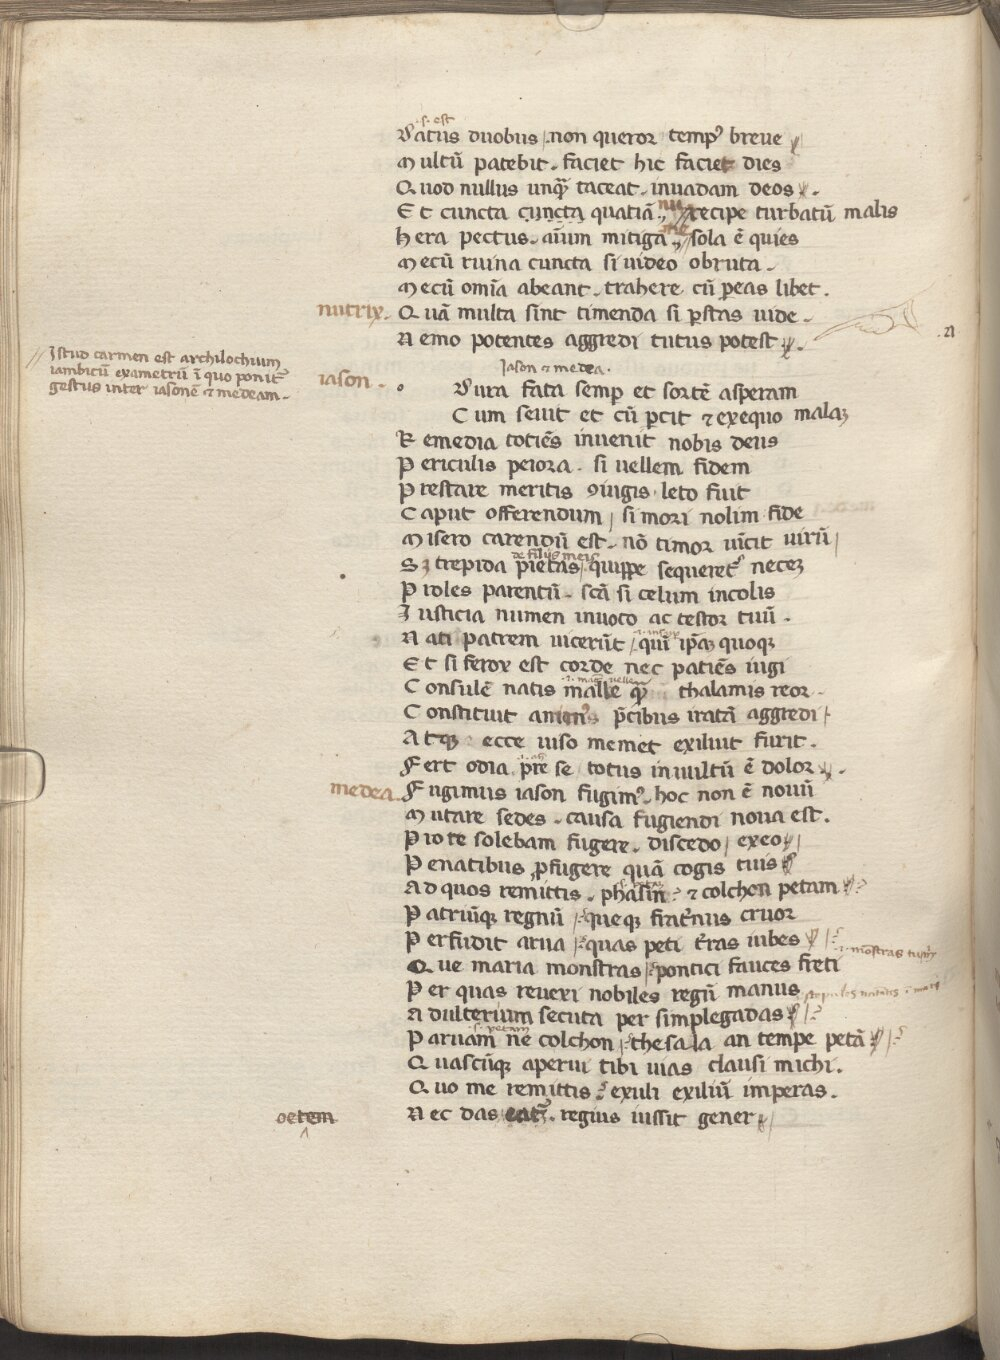 .s. est
Datus duobus / non queror temp9 breue
Multū patebit . faciet hic faciet dies
Quod nullus unqᷓ taceat . inuadam deos .
Et cuncta cuncta quatiā . nu recipe turbatū malis
hera pectus . aīum mitiga . sola ē quies
Mecū ruina cuncta si uideo obruta .
Mecū omīa abeant . trahere cū ꝑeas libet .
nutrix . Quā multa sint timenda si ꝑstas uide .
Nemo potentes aggredi tutus potest .
Jstud carmen est archilochium
iambicū exametrū ī quo ponit᷑
gestus inter iasonē ⁊ medeam .
Jason ⁊ medea .
iason . Dura fata semꝑ et sortē asperam
Cum seuit et cū ꝑcit ⁊ exequo malaꝫ
Remedia totiēs inuenit nobis deus
Periculis peiora . si uellem fidem
Prestare meritis ꝯiugis leto fuit
Caput offerendum / si mori nolim fide
Misero carendū est . nō timor uīcit uirū /
de filijs meis
Sꝫ trepida pietas / quippe sequeret᷑ neceꝫ
Proles parentū . scā si celum incolis
Justicia numen inuoco ac testor tuū .
Nati patrem uicerūt / quī ip̄aꝫ quoqꝫ
Et si ferox est corde nec patiēs iugi
Consulē natis malle qᷓ thalamis reor
Constituit animus p̄cibus iratā aggredi /
Atqꝫ ecce uiso memet exiluit furit .
Fert odia p̄re se / totus in uultū ē dolor .
medea . Fugimus iason fugim9 . hoc non ē nouū
Mutare sedes . causa fugiendi noua est .
Pro te solebam fugere . discedo / exeo /
Penatibus ꝓfugere quā cogis tuis
Ad quos remittis . phasin ⁊ colchon petam
Patriūqꝫ regnū / queqꝫ frat̄nus cruor
Perfudit arua / quas peti t̄ras iubes
Que maria monstras / pontici fauces freti
Per quas reuexi nobiles regū manus
Adulterium secuta per simplegadas
.s. petam
Paruam ne colchon / thesala an tempe petā
Quascūqꝫ aperui tibi uias clausi michi .
Quo me remittis exuli exiliū imperas .
oetem Nec das . regius iussit gener